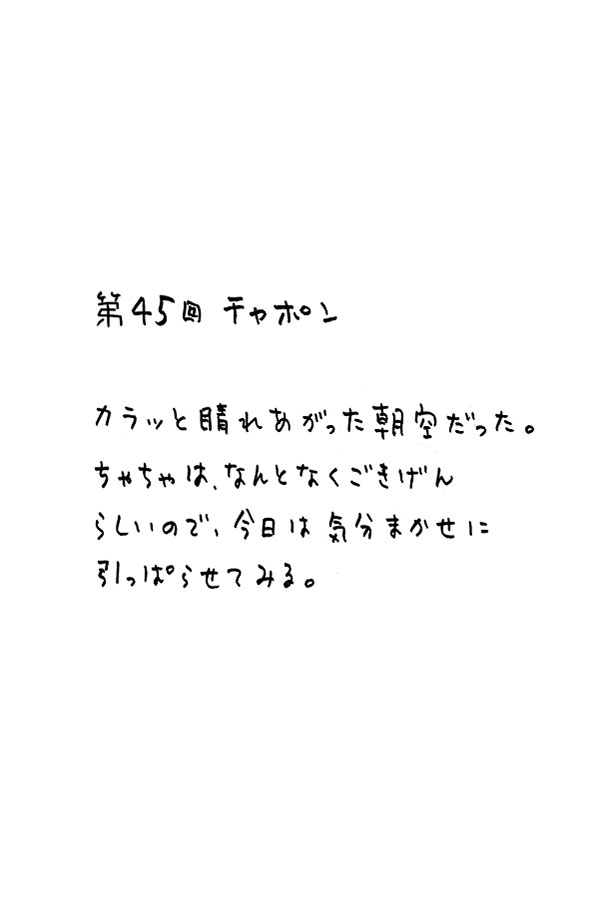 第45回 チャポン
カラッと晴れあがった朝空だった。
ちゃちゃは、なんとなくごきげん
らしいので、今日は気分まかせに
引っぱらせてみる。